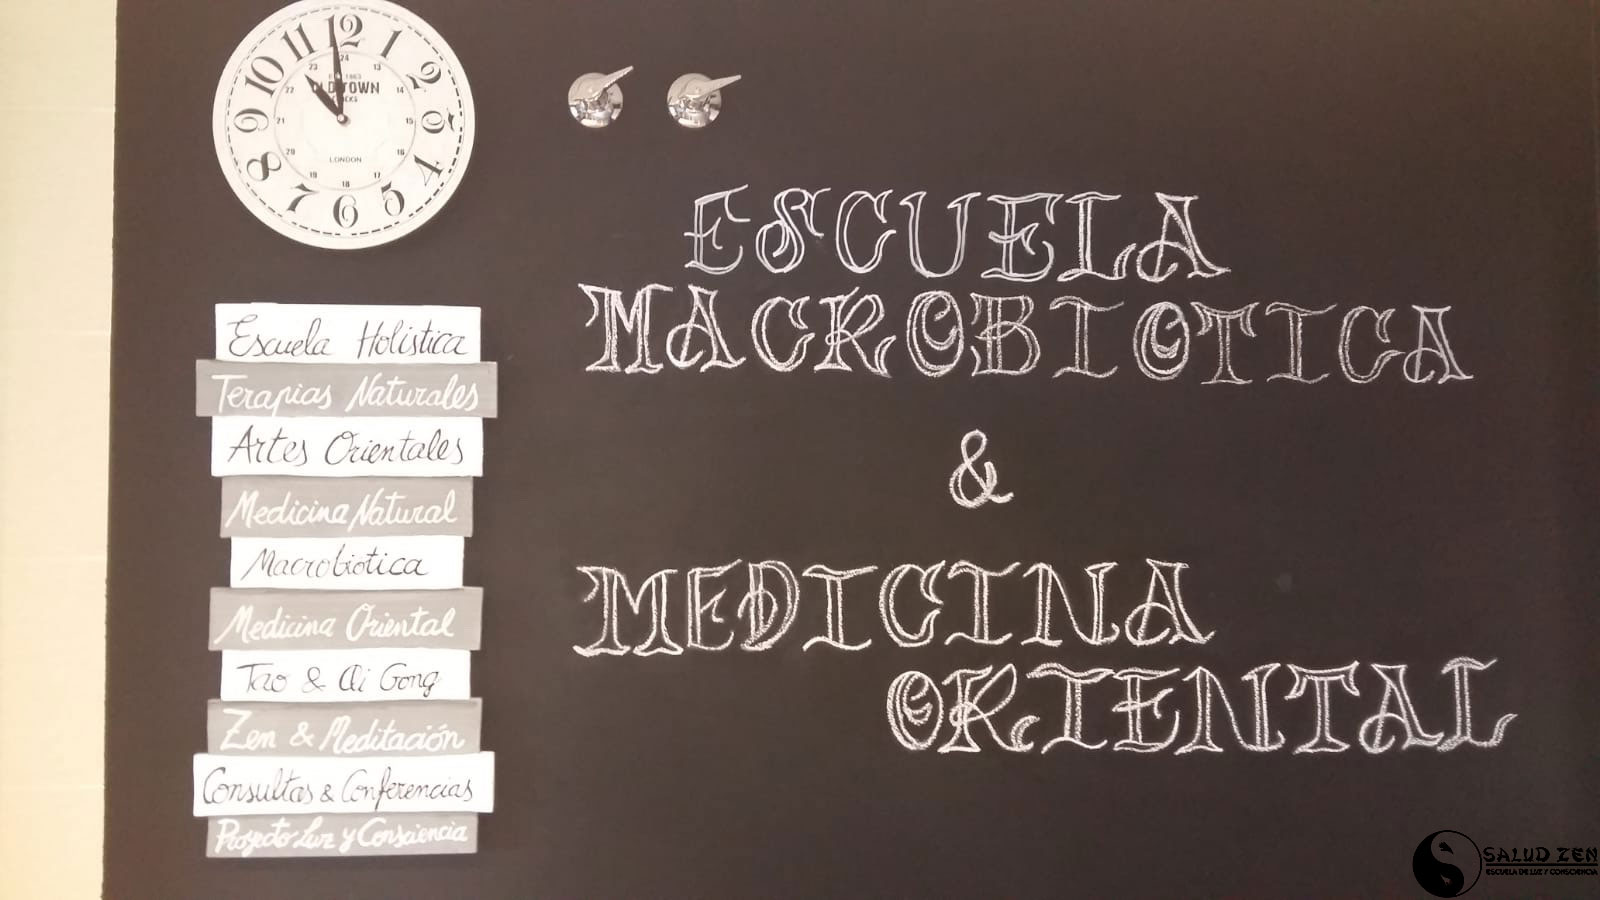 11 12 1
10 2
9 3
8 4
7 6 5
23 24 13
22 14
21 15
20 16
19 18 17
OLD TOWN
LONDON
Escuela Holistica
Terapias Naturales
Artes Orientales
Medicina Natural
Macrobiotica
Medicina Oriental
Tao & Qi Gong
Zen & Meditación
Consultas & Conferencias
Proyecto Luz y Consciencia
ESCUELA
MACROBIOTICA
&
MEDICINA
ORIENTAL
SALUD ZEN
ESCUELA DE LUZ Y CONSCIENCIA